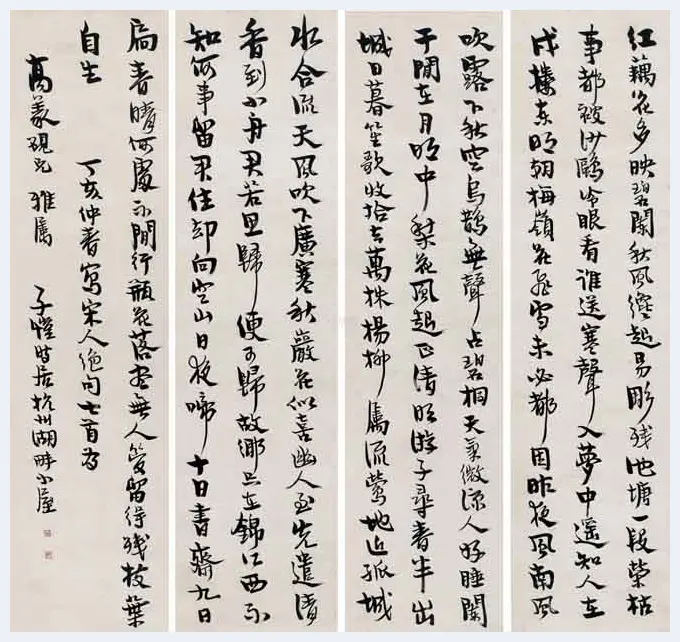 红藕花多映碧闌秋風纔起易彫残池塘一段榮枯
事都被沙鷗冷眼看誰送寒聲入夢中遥知人在
戍樓东明朝梅嶺花飛雪未必都因昨夜風南風
吹露下秋空烏鵲無聲占碧桐天氣微凉人好睡闌
干閒在月明中梨花風起正清明游子尋春半出
城日暮笙歌收拾去萬株楊柳屬流鶯地近孤城
水合流天風吹下廣寒秋巖花似喜幽人至先遣清
香到小舟君若思歸便可歸故鄉只在錦江西不
知何事留君住却向空山日夜啼十日書齋九日
扃春晴何處不閒行瓶花落尽無人管留得残枝葉
自生 丁亥仲春寫宋人绝句七首为
高羲硯兄 雅属 子愷時居杭州湖畔小屋